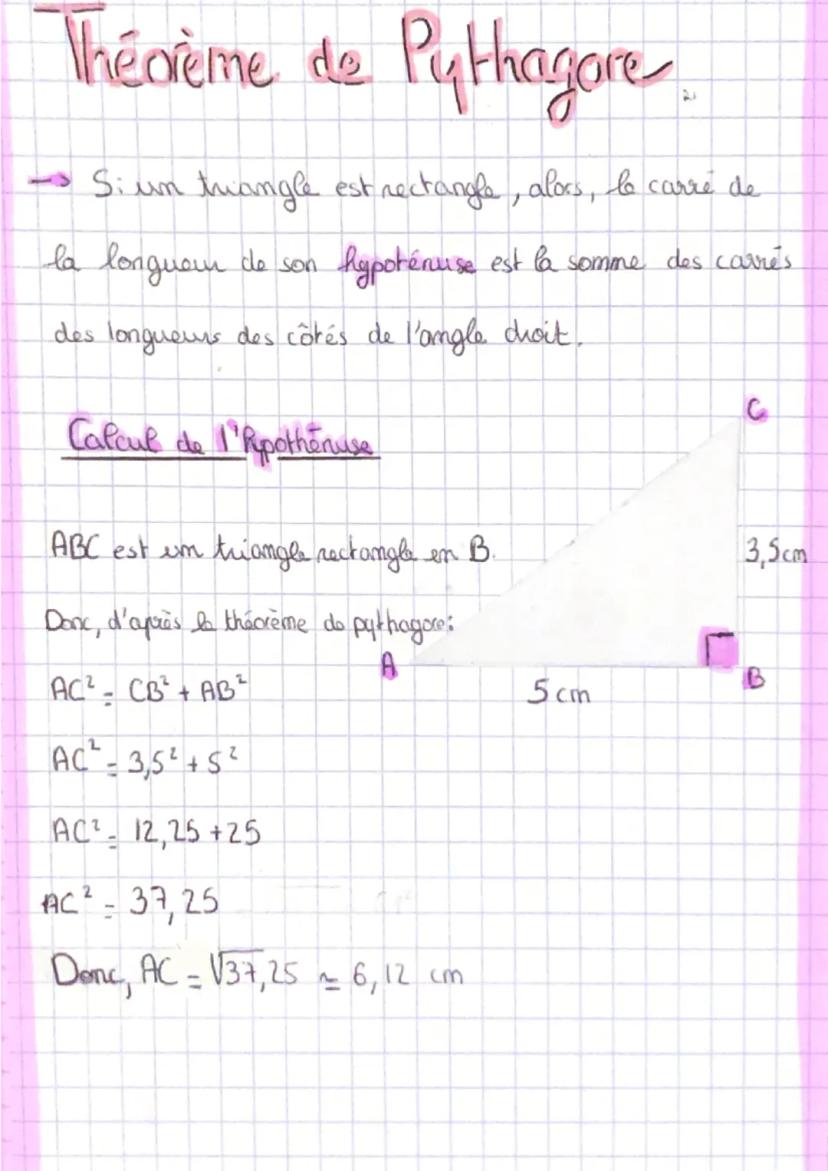 Théorème de Pythagore
→ Si un triangle est rectangle, alors, le carré de
la longueur de son hypoténuse est la somme des carrés
des longueurs des côtés de l'angle droit.
Calcul de l'hypothénuse
C
ABC est un triangle rectangle en B.
3,5cm
Donc, d'après le théorème de pythagore:
A
B
5cm
AC² = CB² + AB²
AC² = 3,5² + 5²
AC² = 12,25 + 25
AC² = 37,25
Donc, AC = √37,25 ≃ 6,12 cm